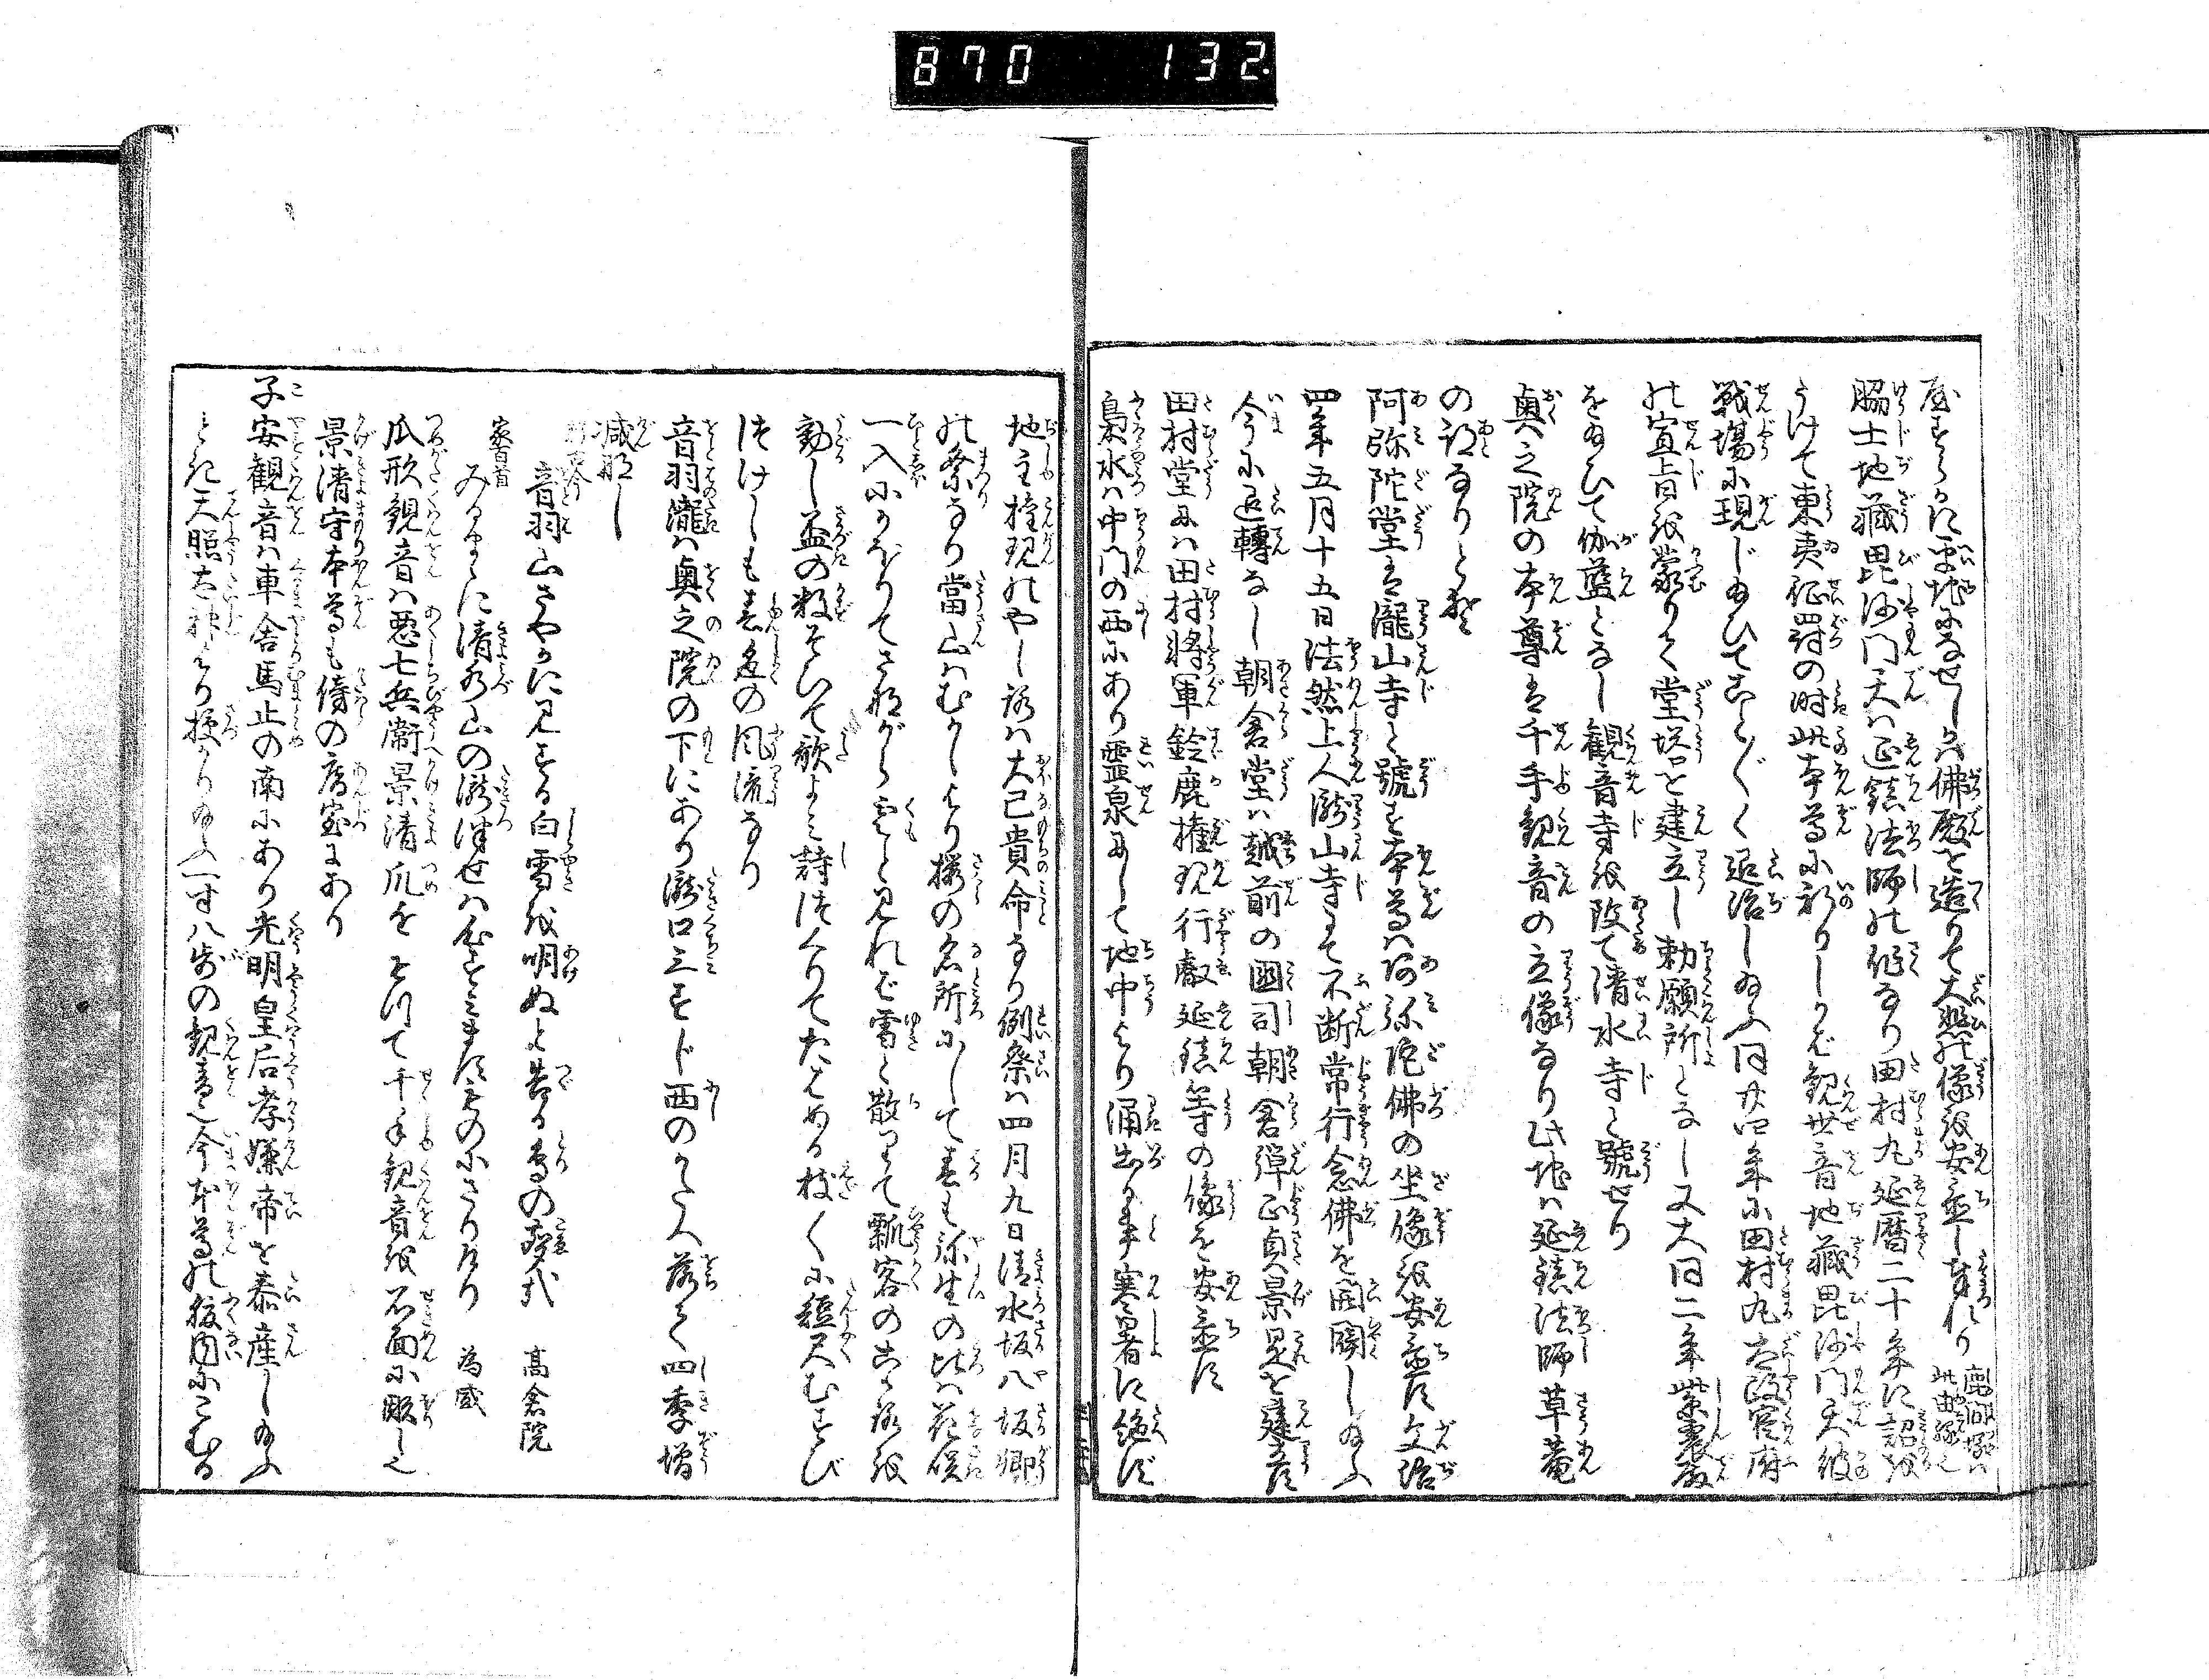 870 132.
屋すらかに平地になせしかば佛殿を造りて大悲の像を安置し奉れり 鹿間塚は此由縁也
脇士地蔵毘沙門天は延鎮法師の作なり田村丸延暦二十年に詔を
うけて東夷征罸の時此本尊に祈りしかば観世音地蔵毘沙門天彼
戦場に現じ給ひてこと〴〵く退治し給ふ同廿四年に田村丸太政官府
の宣旨を蒙りて堂塔を建立し勅願所となし又大同二年紫宸殿
を給ひて伽藍となし観音寺を改て清水寺と號せり
奥之院の本尊は千手観音の立像なり此地は延鎮法師草菴
の跡なりとぞ
阿弥陀堂は瀧山寺と號す本尊は阿弥陀佛の坐像を安置す文治
四年五月十五日法然上人瀧山寺にて不断常行念佛を開闢し給ふ
今に退轉なし朝倉堂は越前の國司朝倉弾正貞景是を建立す
田村堂には田村将軍鈴鹿権現行叡延鎮等の像を安置す
梟水は中門の西にあり霊泉にして地中より涌出る事寒暑に絶ず
地主権現のやしろは大己貴命なり例祭は四月九日清水坂八坂郷
の祭なり當山はむかしより櫻の名所にして春も弥生の比は花咲
一入にかほりてさながら雲と見れば雪と散りて瓢客のこゝろを
動し盃の数そひて歌よみ詩つくりてたはめる枝〳〵に短尺むすび
つけしも春色の風流なり
音羽瀧は奥之院の下にあり瀧口三すじ西のかたへ落て四季増
減なし
音羽山さやかに見する白雪を明ぬと告る鳥の聲哉 高倉院
家百首
みなかみに清水山の瀧津せは 為盛
爪形観音は悪七兵衞景清爪をもつて千手観音を石面に彫し也
景清守本尊も傍の庵室にあり
子安観音は車舎馬止の南にあり光明皇后孝嫌帝を泰産し給ふ
とき天照太神より授かり給ふ一寸八歩の観音也今本尊の腹内にこむる